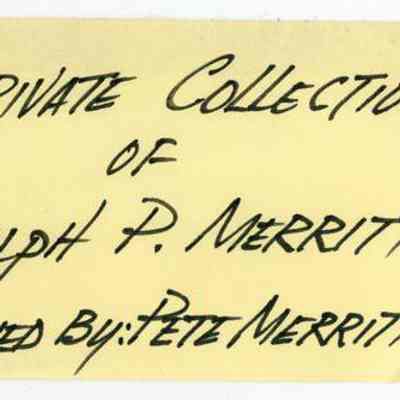 RIVATE COLLECTIO
OF
LPH P. MERRITT
NED BY: PETE MERRITT